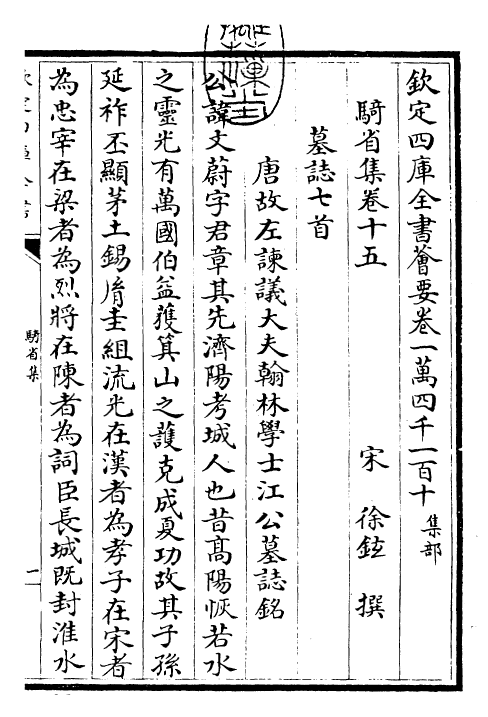 欽定四庫全書薈要卷一萬四千一百十 集部
騎省集卷十五 宋 徐鉉 撰
墓誌七首
唐故左諫議大夫翰林學士江公墓誌銘
公諱文蔚字君章其先濟陽考城人也昔髙陽恢若水
之靈光有萬國伯益蒦箕山之䕶克成夏功故其子孫
延祚丕顯茅土錫胤圭組流光在漢者為孝子在宋者
為忠宰在梁者為烈將在陳者為詞臣長城既封淮水
騎省集
一